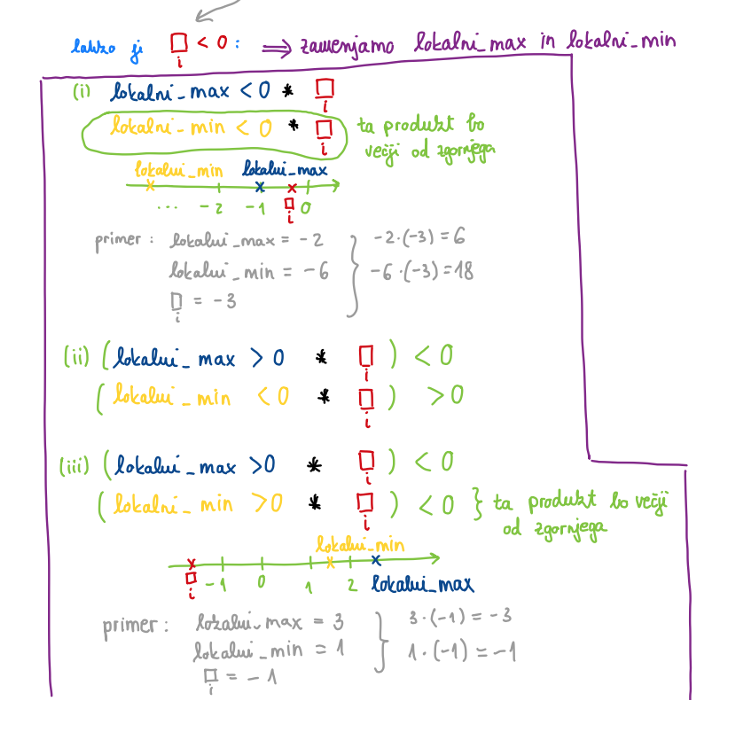 lahko je □ < 0 : ⟹ zamenjamo lokalni_max in lokalni_min
i
(i) lokalni_max < 0 * □
i
lokalni_min < 0 * □ ta produkt bo
i večji od zgornjega
lokalni_min lokalni_max
... -2 -1 □ 0
i
primer : lokalni_max = -2 } -2·(-3) = 6
lokalni_min = -6 -6·(-3) = 18
□ = -3
i
(ii) (lokalni_max > 0 * □) < 0
i
(lokalni_min < 0 * □) > 0
i
(iii) (lokalni_max >0 * □) < 0
i
(lokalni_min >0 * □) < 0 } ta produkt bo večji
i od zgornjega
lokalni_min
□ -1 0 1 2 lokalni_max
i
primer : lokalni_max = 3 } 3·(-1) = -3
lokalni_min = 1 1·(-1) = -1
□ = -1
i